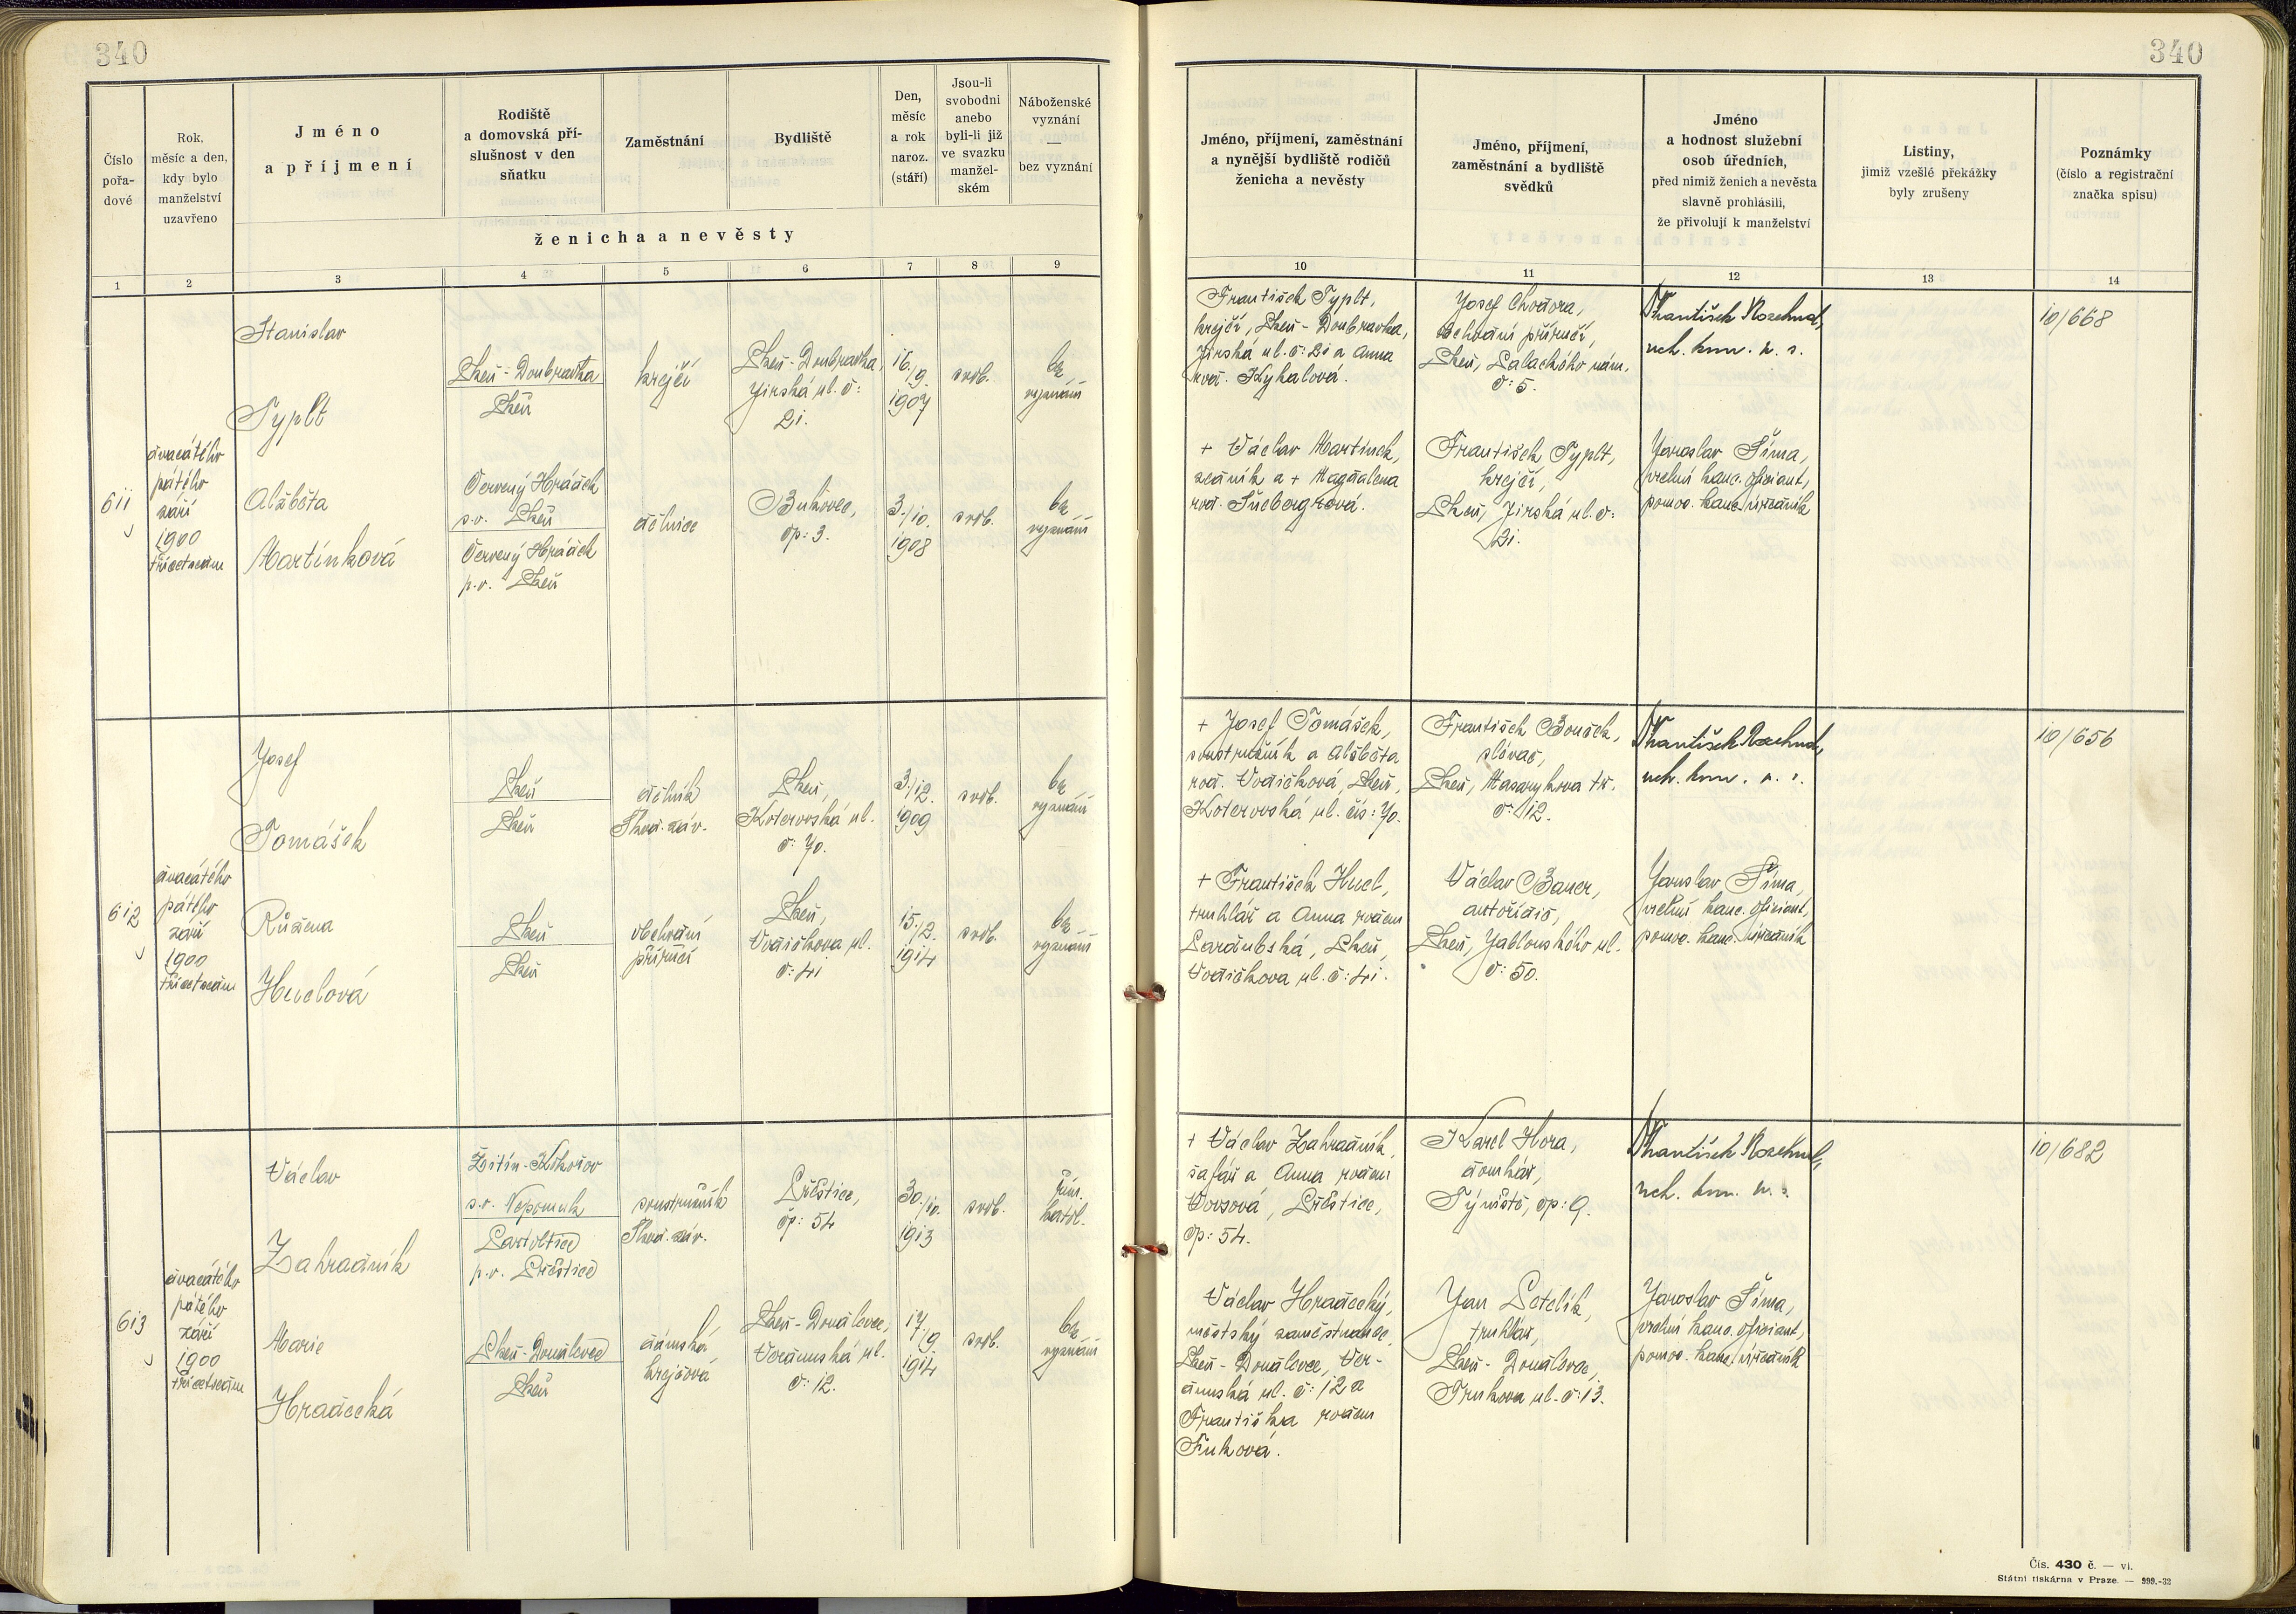 340
340
Číslo
pořa-
dové
Rok,
měsíc a den,
kdy bylo
manželství
uzavřeno
Jméno
a příjmení
Rodiště
a domovská pří-
slušnost v den
sňatku
Zaměstnání
Bydliště
Den,
měsíc
a rok
naroz.
(stáří)
Jsou-li
svobodni
anebo
byli-li již
ve svazku
manžel-
ském
Náboženské
vyznání
—
bez vyznání
ženicha a nevěsty
Jméno, příjmení, zaměstnání
a nynější bydliště rodičů
ženicha a nevěsty
Jméno, příjmení,
zaměstnání a bydliště
svědků
Jméno
a hodnost služební
osob úředních,
před nimiž ženich a nevěsta
slavně prohlásili,
že přivolují k manželství
Listiny,
jimiž vzešlé překážky
byly zrušeny
Poznámky
(číslo a registrační
značka spisu)
1 2 3 4 5 6 7 8 9 10 11 12 13 14
611
dvacátého
pátého
září
1900
třicetsedm
Stanislav
Typlt
Plzeň-Doubravka
Plzeň
krejčí
Plzeň-Doubravka,
Jirská ul. č:
21.
16./9.
1907
svob.
bez
vyznání
František Typlt,
krejčí, Plzeň-Doubravka,
Jirská ul. č: 21 a Anna
roz. Kyhalová.
Josef Chodora,
obchodní příručí,
Plzeň, Palackého nám.
č: 5.
František
uch. kom. r. s.
10/668
Alžběta
Martínková
Červený Hrádek
s.o. Plzeň
Červený Hrádek
p.o. Plzeň
dělnice
Bukovec,
čp: 3.
3./10.
1908
svob.
bez
vyznání
+ Václav Martínek,
zedník a + Magdalena
roz.
František Typlt,
krejčí,
Plzeň, Jirská ul. č:
21.
Jaroslav Šíma,
vrchní kanc. oficiant,
pomoc. kanc. úředník
612
dvacátého
pátého
září
1900
třicetsedm
Josef
Tomášek
Plzeň
Plzeň
dělník
Škod. záv.
Plzeň,
Koterovská ul.
č: 70.
3./12.
1909
svob.
bez
vyznání
+ Josef Tomášek,
soustružník a Alžběta
roz. Vodičková, Plzeň,
Koterovská ul. čís: 70.
František Bouček,
slévač,
Plzeň, Masarykova tř.
č: 12.
František
uch. kom. r. s.
10/656
Růžena
Huclová
Plzeň
Plzeň
obchodní
příručí
Plzeň,
Vodičkova ul.
č: 41
15./2.
1914
svob.
bez
vyznání
+ František Hucl,
truhlář a Anna rozem
Pardubská, Plzeň,
Vodičkova ul. č: 41.
Václav Bauer,
autořidič,
Plzeň, Jablonského ul.
č: 50.
Jaroslav Šíma,
vrchní kanc. oficiant,
pomoc. kanc. úředník
613
dvacátého
pátého
září
1900
třicetsedm
Václav
Zahradník
Žitín-Kokořov
s.o. Nepomuk
p.o. Přeštice
soustružník
Škod. záv.
Přeštice,
čp: 54
30./10.
1913
svob.
řím.
katol.
+ Václav Zahradník,
šafář a Anna rozem
Přeštice,
čp: 54.
Karel Hora,
domkář,
Týniště, čp: 9.
František
uch. kom. r. s.
10/682
Marie
Hradecká
Plzeň-Doudlevce
Plzeň
dámská
krejčová
Plzeň-Doudlevce,
Verdunská ul.
č: 12.
17./9.
1914
svob.
bez
vyznání
Václav Hradecký,
městský zaměstnanec,
Plzeň-Doudlevce, Ver-
dunská ul. č: 12 a
Františka rozem
Fuková.
Jan Petelík,
truhlář,
Plzeň-Doudlevce,
Trnkova ul. č: 13.
Jaroslav Šíma,
vrchní kanc. oficiant,
pomoc. kanc. úředník
Čís. 430 č. — vl.
Státní tiskárna v Praze. — 999.-32